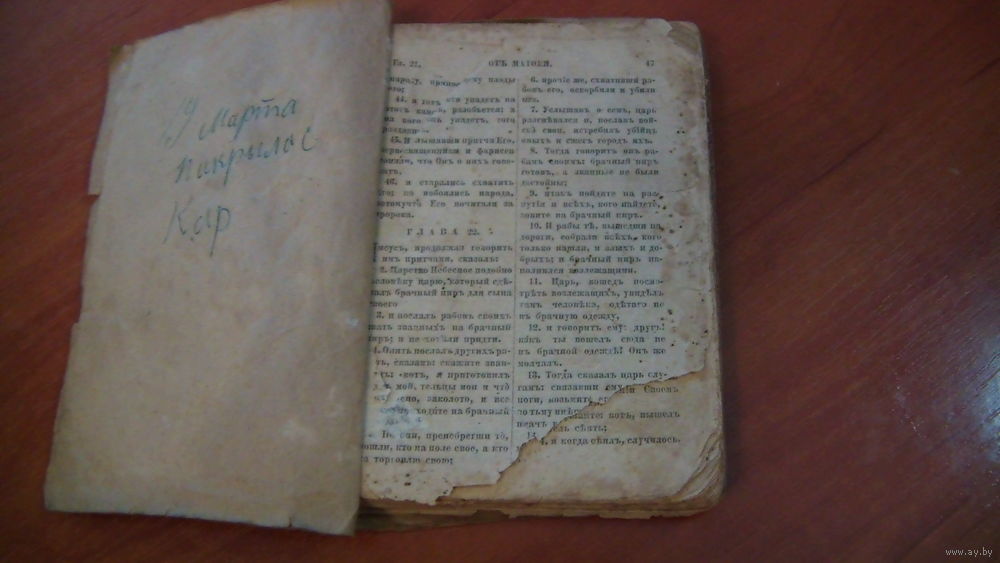 9 Марта
пакрылас
Кар
Гл. 21.
ОТЪ МАТѲЕЯ.
47
народу, плоды
его;
44. и тотъ, кто упадетъ на
этотъ камень, разобьется: а
на кого онъ упадетъ, того
раздавитъ.
45. И слышавши притчи Его,
первосвященники и фарисеи
поняли, что Онъ о нихъ гово-
ритъ,
46. и старались схватить
Его; но побоялись народа,
потомучто Его почитали за
пророка.
ГЛАВА 22.
Іисусъ, продолжая говорить
имъ притчами, сказалъ:
2. Царство Небесное подобно
человѣку царю, который сдѣ-
лалъ брачный пиръ для сына
своего
3. и послалъ рабовъ своихъ
звать званныхъ на брачный
пиръ; и не хотѣли придти.
4. Опять послалъ другихъ ра-
бовъ, сказавъ: скажите зван-
нымъ: вотъ, я приготовилъ
мой, тельцы мои и что
заколото, и все
приходите на брачный
Но они, пренебрегши то,
пошли, кто на поле свое, а кто
на торговлю свою;
6. прочіе же, схвативши ра-
бовъ его, оскорбили и убили
ихъ.
7. Услышавъ о семъ, царь
разгнѣвался и, пославъ вой-
ска свои, истребилъ убійцъ
оныхъ и сжегъ городъ ихъ.
8. Тогда говоритъ онъ ра-
бамъ своимъ: брачный пиръ
готовъ, а званные не были
достойны;
9. итакъ пойдите на рас-
путія и всѣхъ, кого найдете,
зовите на брачный пиръ.
10. И рабы тѣ, вышедши на
дороги, собрали всѣхъ, кого
только нашли, и злыхъ и до-
брыхъ; и брачный пиръ на-
полнился возлежащими.
11. Царь, вошедъ посмо-
трѣть возлежащихъ, увидѣлъ
тамъ человѣка, одѣтаго не
въ брачную одежду,
12. и говоритъ ему: другъ!
какъ ты вошелъ сюда не
въ брачной одеждѣ? Онъ же
молчалъ.
13. Тогда сказалъ царь слу-
гамъ: связавши ему Своемъ
ноги, возьмите его
во тьму вотъ, вышелъ
плачъ сѣять;
4. и когда сѣялъ, случилось,
www.ay.by